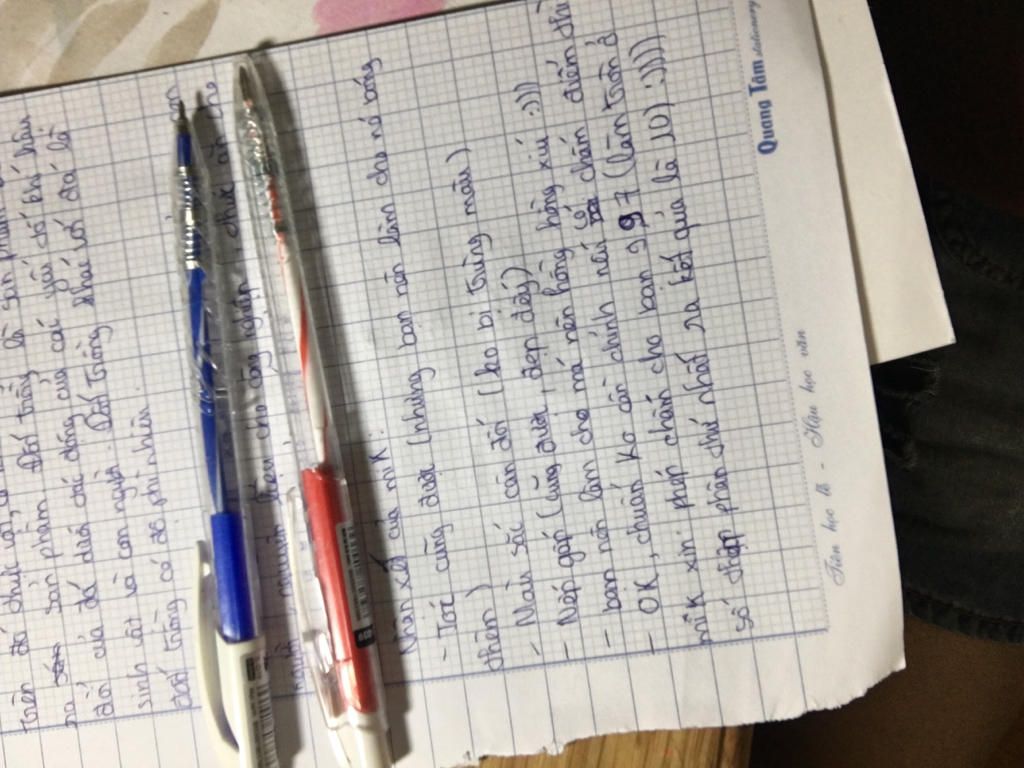 Trên đó thực vật,
ra sản phẩm. Đất trồng là sản phẩm
ăn của đá dưới tác động của các yếu tố khí hậu
sinh vật và con người. Đất trồng khác với đá là
đất trồng có độ phì nhiêu.
nguyên liệu cho công nghiệp, thức ăn cho
Nhận xét của mik:
- Tóc cũng được (nhưng bạn nên làm cho nó bóng
thêm)
- Màu sắc cân đối (ko bị trùng màu)
- Nếp gấp (cũng được, đẹp đấy)
- bạn nên làm cho má nên hồng hồng xíu :)))
- OK, chuẩn ko cần chỉnh nếu có chấm điểm thì
mik xin phép chấm cho bạn 9,97 (làm tròn ở
số thập phân thứ nhất ra kết quả là 10) :))))
Quang Tâm stationery
Tiên học lễ - Hậu học văn